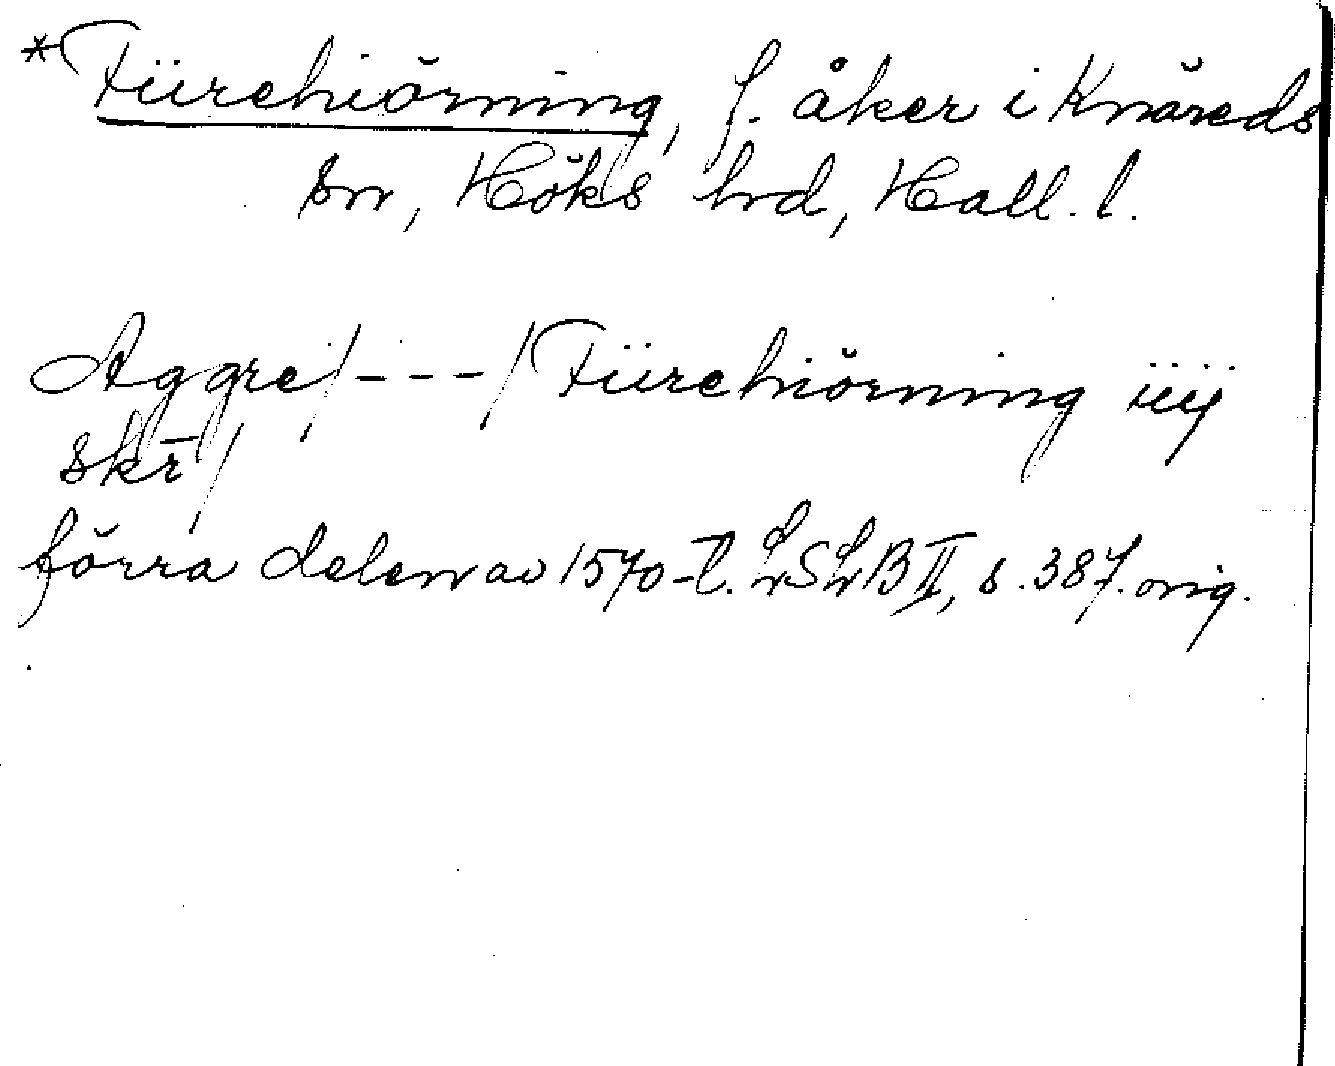 *Fiirehiörning, f. åker i Knäreds
sn, Höks hrd, Hall. l.
Aggre/---/Fiirehiörning iiij
skr̄/
förra delen av 1570-t. LSLB II, s. 387. orig.